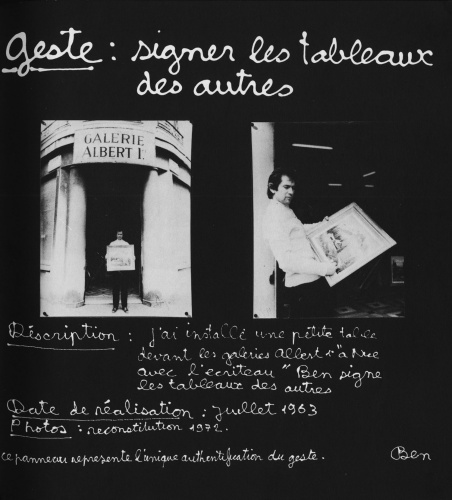 Geste : signer les tableaux
des autres
GALERIE
ALBERT I.
Déscription : j'ai installé une petite table
devant les galeries Albert 1er à Nice
avec l'écriteau "Ben signe
les tableaux des autres
Date de réalisation : Juillet 1963
Photos : reconstitution 1972.
ce panneau represente l'unique authentification du geste.
Ben